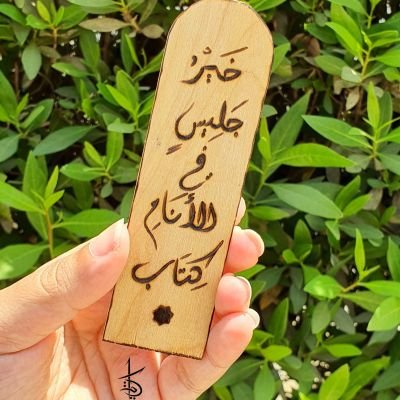 خَيْرُ
جَلِيسٍ
في
الأَنَامِ
كِتَاب